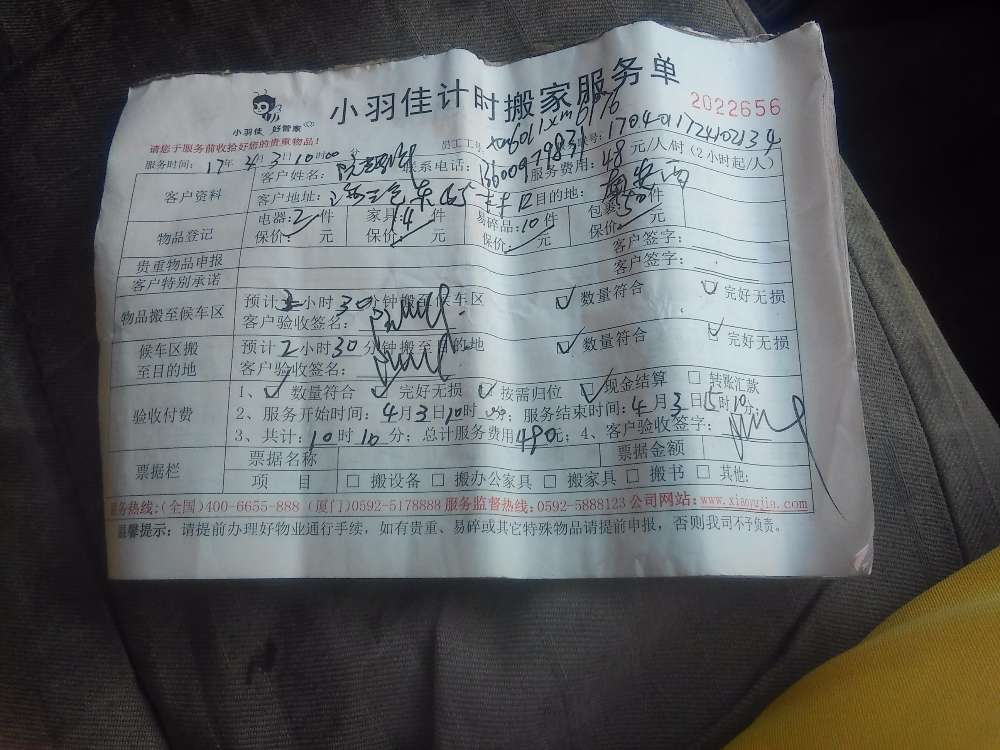 小羽佳 好管家
小羽佳计时搬家服务单
2022656
请您于服务前收拾好您的贵重物品!
员工工号
单号: 17040117241021 34
服务时间: 17年 4月 3日 10时 00分
客户资料
客户姓名:
联系电话:
服务费用: 48元/人/时 (2小时起/人)
客户地址:
目的地:
物品登记
电器: 2件 家具: 4件 易碎品: 10件 包裹: 50件
保价: 元 保价: 元 保价: 元 保价: 元
贵重物品申报 客户签字:
客户特别承诺 客户签字:
物品搬至候车区
预计 小时30分钟搬至候车区
数量符合 完好无损
客户验收签名:
候车区搬至目的地
预计2小时30分钟搬至目的地
数量符合 完好无损
客户验收签名:
验收付费
1、 数量符合 完好无损 按需归位 现金结算 转账汇款
2、服务开始时间: 4月3日10时 分; 服务结束时间: 4月3日15时10分;
3、共计: 10时10分; 总计服务费用480元; 4、客户验收签字:
票据栏
票据名称 票据金额
项 目 搬设备 搬办公家具 搬家具 搬书 其他:
服务热线:(全国)400-6655-888 (厦门)0592-5178888 服务监督热线:0592-5888123 公司网站:www.xiaoyujia.com
温馨提示: 请提前办理好物业通行手续, 如有贵重、易碎或其它特殊物品请提前申报, 否则我司不予负责。